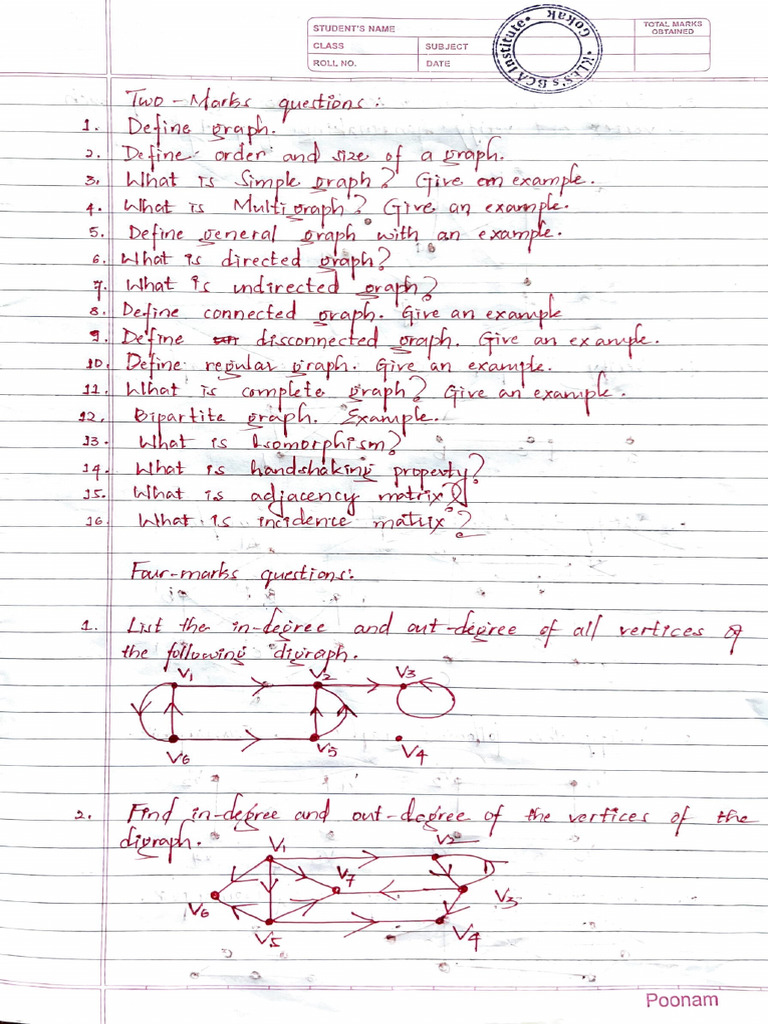 STUDENT'S NAME
TOTAL MARKS OBTAINED
CLASS SUBJECT
ROLL NO. DATE
KLES's BCA Institute Gokak
Two-Marks questions:
1. Define graph.
2. Define order and size of a graph.
3. What is Simple graph? Give an example.
4. What is Multigraph? Give an example.
5. Define general graph with an example.
6. What is directed graph?
7. What is undirected graph?
8. Define connected graph. Give an example
9. Define disconnected graph. Give an example.
10. Define regular graph. Give an example.
11. What is complete graph? Give an example.
12. Bipartite graph. Example.
13. What is Isomorphism?
14. What is handshaking property?
15. What is adjacency matrix?
16. What is incidence matrix?
Four-marks questions:
1. List the in-degree and out-degree of all vertices of
the following digraph.
V1 V2 V3
V6 V5 V4
2. Find in-degree and out-degree of the vertices of the
digraph.
V1 V2
V7
V6 V3
V5 V4
Poonam